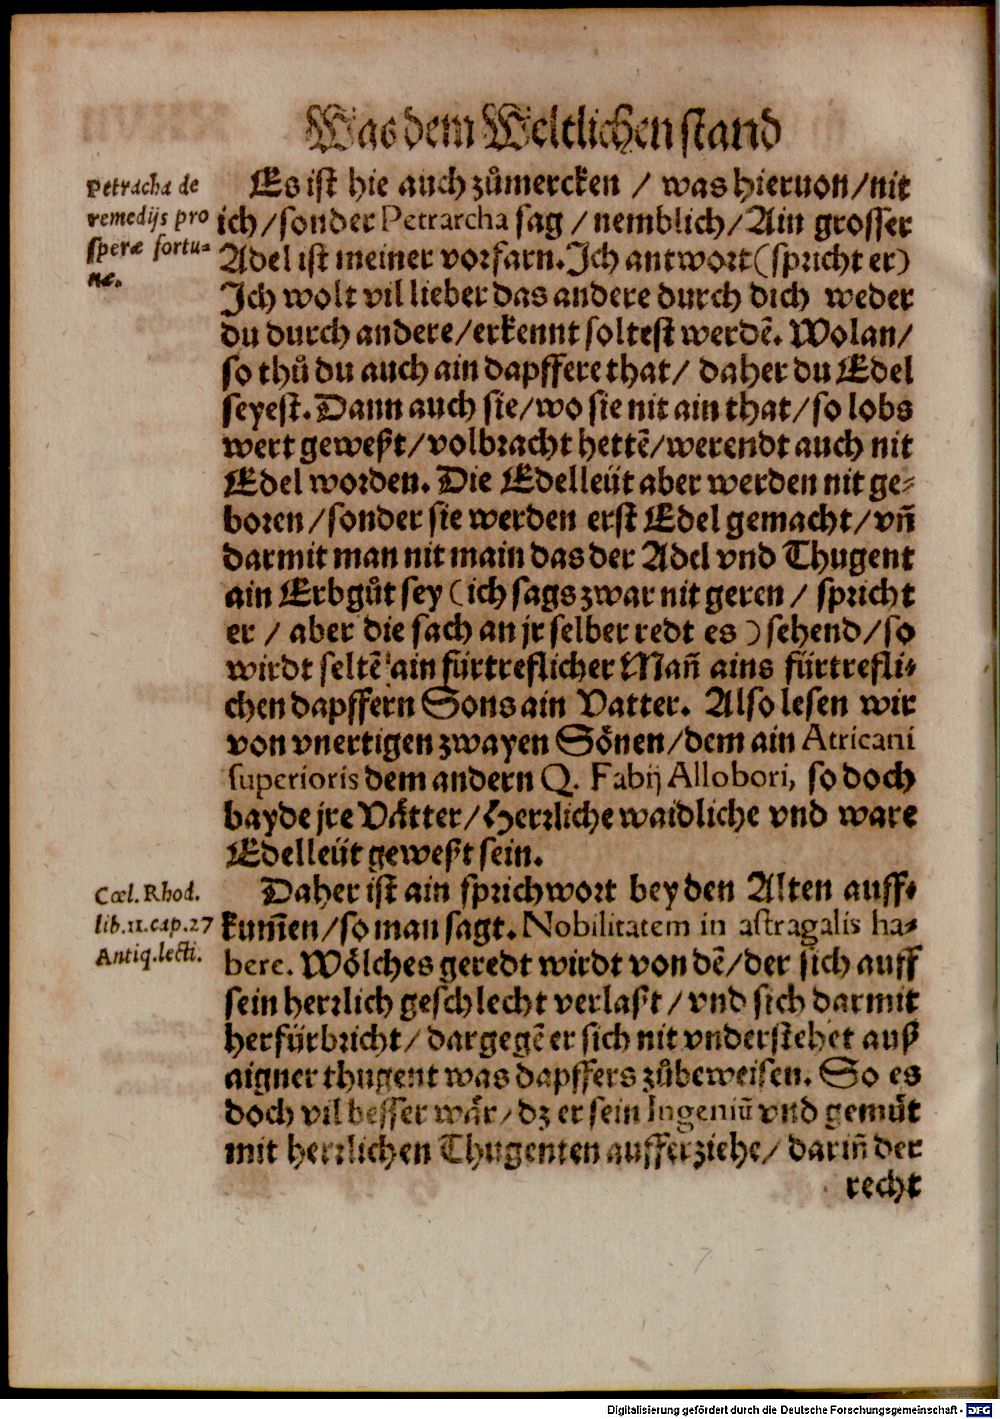 Was dem Weltlichen stand
Petracha de
remedijs pro
speræ fortu-
næ.
Es ist hie auch zůmercken / was hieruon / nit
ich / sonder Petrarcha sag / nemblich / Ain grosser
Adel ist meiner vorfarn. Ich antwort (spricht er)
Ich wolt vil lieber das andere durch dich weder
du durch andere / erkennt soltest werdē. Wolan /
so thů du auch ain dapffere that / daher du Edel
seyest. Dann auch sie / wo sie nit ain that / so lobs
wert geweßt / volbracht hettē / werendt auch nit
Edel worden. Die Edelleüt aber werden nit ge-
boren / sonder sie werden erst Edel gemacht / vñ
darmit man nit main das der Adel vnd Thugent
ain Erbgůt sey (ich sags zwar nit geren / spricht
er / aber die sach an jr selber redt es) sehend / so
wirdt seltē ain fürtreflicher Mañ ains fürtrefli-
chen dapffern Sons ain Vatter. Also lesen wir
von vnertigen zwayen Sönen / dem ain Africani
superioris dem andern Q. Fabij Allobori, so doch
bayde jre Vätter / Herrliche waidliche vnd ware
Edelleüt geweßt sein.
Cœl. Rhod.
lib. 11. cap. 27
Antiq. lecti.
Daher ist ain sprichwort bey den Alten auff-
kum̄en / so man sagt. Nobilitatem in astragalis ha-
bere. Wölches geredt wirdt von dē / der sich auff
sein herrlich geschlecht verlaßt / vnd sich darmit
herfürbricht / dargegē er sich nit vnderstehet auß
aigner thugent was dapffers zůbeweisen. So es
doch vil besser wär / dz er sein Ingeniū vnd gemüt
mit herrlichen Thugenten aufferziehe / dariñ der
recht
Digitalisierung gefördert durch die Deutsche Forschungsgemeinschaft - DFG